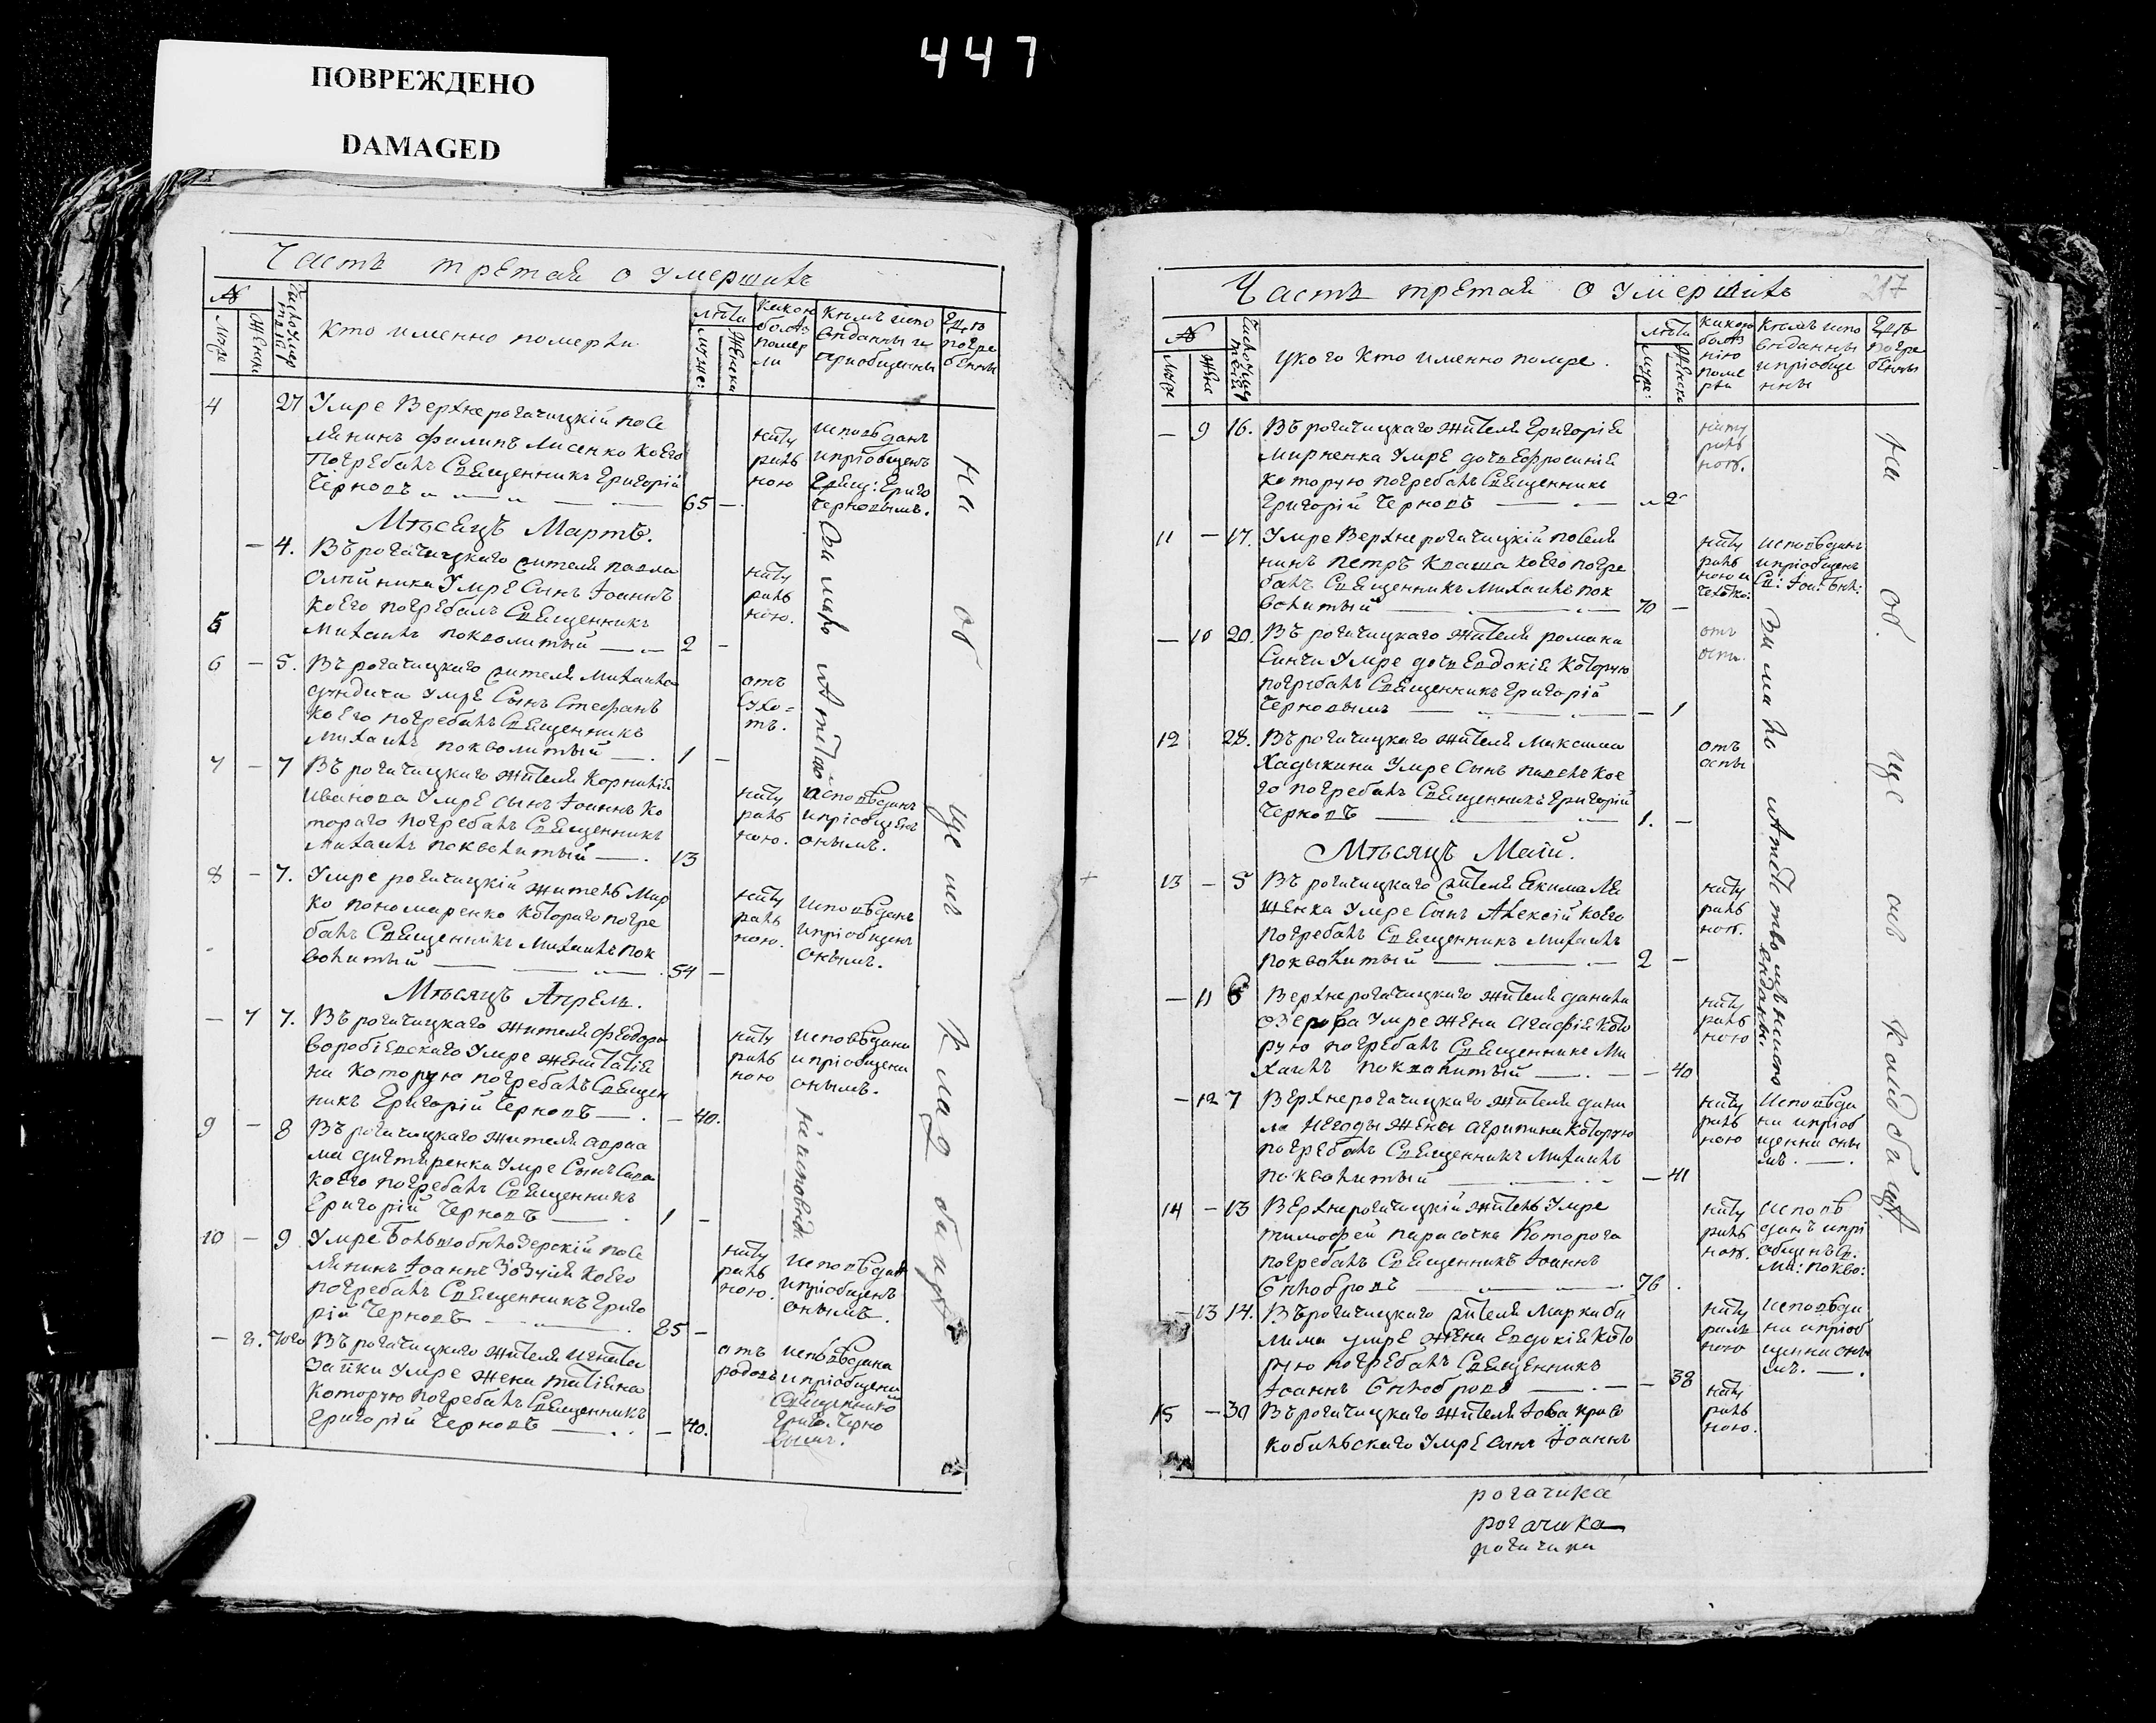 447
ПОВРЕЖДЕНО
DAMAGED
Часть третая о умершихъ
№
Муже
Женск
Число умер
Кто именно померли
Лѣта
муже:
Женска
Какою
болѣз
помер
ли
Кѣмъ испо
виданны и
приобщенны
Гдѣ
погре
бенны
4 27 Умре Верхнерогачицкій посе
лянинъ Филипъ Лисенко коего
погребалъ Священникъ Григорій
Черновъ 65 –
нату
ралъ
ною
исповѣданъ
и пріобщенъ
Свящ: Григо
Черновымъ.
Мѣсяцъ Мартъ.
5 – 4. Въ рогачицкаго жителя павла
Олпйника Умре Сынъ Іоаннъ
коего погребалъ Священникъ
Михаилъ поквалитый 2 –
нату
ралъ
ною.
6 – 5. Въ рогачицкаго жителя Михаила
дундича Умре Сынъ Стефанъ
коего погребалъ Священникъ
Михаилъ поквалитый 1 –
отъ
Сухо=
тъ.
7 – 7 Въ рогачицкаго жителя Корнилія
Иванова Умре сынъ Іоаннъ ко
тораго погребалъ Священникъ
Михаилъ поквалитый 13
нату
ралъ
ною.
исповѣданъ
и пріобщенъ
онымъ.
8 – 7. Умре рогачицкій житель Мир
ко пономаренко котораго погре
балъ Священникъ Михаилъ пок
валитый 54 –
нату
ралъ
ною.
исповѣданъ
и пріобщенъ
онымъ.
Мѣсяцъ Апрель.
– 7 7. Въ рогачицкаго жителя Феодора
воробіевскаго Умре жена татіа
на которую погребалъ Священ
никъ Григорій Черновъ – 40.
нату
ралъ
ною
исповѣдана
и пріобщена
онымъ.
9 – 8 Въ рогачицкаго жителя авраа
ма дигтяренка Умре Сынъ Сава
коего погребалъ Священникъ
Григорій Черновъ 1 –
10 – 9 Умре Большобѣлозерскій посе
лянинъ Іоаннъ Зозуля коего
погребалъ Священникъ Григо
рій Черновъ 85 –
нату
ралъ
ною.
исповѣданъ
и пріобщенъ
онымъ.
– 8. того Въ рогачицкаго жителя игната
запки Умре жена татіяна
которую погребалъ Священникъ
Григорій Черновъ – 40.
отъ
родовъ
исповѣдана
и пріобщена
Священникю
Григо. Черно
вымъ.
За мало лѣтствомъ
не исповѣд
На общемъ кладбищѣ
217
Часть третая о умершихъ
№
Муже
Жене
Число умер
у кого кто именно помре.
Лѣта
Муже:
Женска
Какою
болѣз
нію
поме
рли
Кѣмъ испо
виданны
и пріобще
нны
Гдѣ
погре
бенны
– 9 16. Въ рогачицкаго жителя Григорія
Мирненка Умре дочь Ефросинія
которую погребалъ Священникъ
Григорій Черновъ 2
нату
ралъ
ною.
11 – 17. Умре Верхнерогачицкій поселя
нинъ петръ Кваша коего погре
балъ Священникъ Михаилъ пок
валитый 70 –
нату
ралъ
ною и
исповѣданъ
и пріобщенъ
Св: Іоа: Бѣл:
– 10 20. Въ рогачицкаго жителя романа
Синчи Умре дочь Евдокія которую
погребалъ Священникъ Григорій
Черновымъ – 1
отъ
оспы.
12 28. Въ рогачицкаго жителя Максима
Хадыкина Умре Сынъ павелъ кое
го погребалъ Священникъ Григорій
Черновъ 1. –
отъ
оспы
Мѣсяцъ Маій.
13 – 5 Въ рогачицкаго жителя Екима Ля
шенка Умре Сынъ Алексій коего
погребалъ Священникъ Михаилъ
поквалитый 2 –
нату
ралъ
ною.
– 11 6 Верхнерогачицкаго жителя данила
озерова Умре жена агафія кото
рую погребалъ Священникъ Ми
хаилъ поквалитый – 40
нату
ралъ
ною
– 12 7 Верхнерогачицкаго жителя дани
ла Негоды жена агрипина которую
погребалъ Священникъ Михаилъ
поквалитый – 41
нату
ралъ
ною
Исповѣда
на и пріоб
щенна оны
мъ.
14 – 13 Верхнерогачицкій житель Умре
тимофей парасочка Котораго
погребалъ Священникъ Іоаннъ
Бѣлобровъ 76
нату
ралъ
ною.
исповѣ
данъ и прі
общенъ Св.
Ми: покво:
– 13 14. Въ рогачицкаго жителя Марка би
лима умре жена Евдокія кото
рую погребалъ Священникъ
Іоаннъ Бѣлобровъ – 38
нату
ралъ
ною
исповѣда
на и пріоб
щенна оны
мъ.
15 – 30 Въ рогачицкаго жителя Іова красо
кобильскаго Умре сынъ Іоаннъ
нату
ралъ
ною.
За малолѣтствомъ не испо
веданны
На общемъ кладбищѣ.
рогачика
рогачика
рогачика